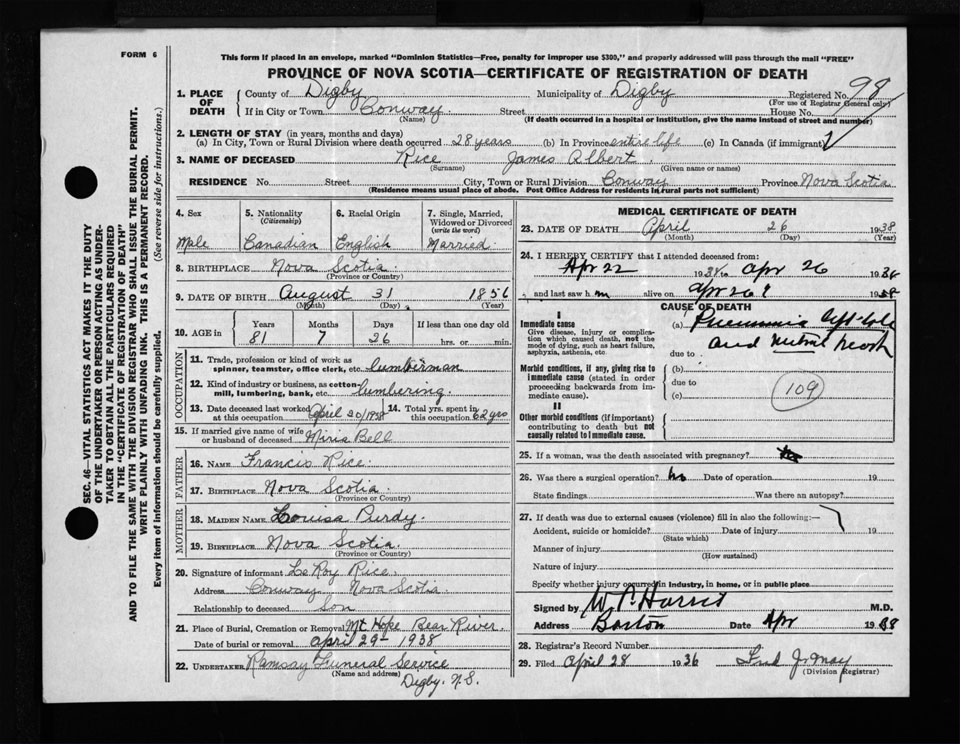 FORM 6
This form if placed in an envelope, marked "Dominion Statistics—Free, penalty for improper use $300," and properly addressed will pass through the mail "FREE"
PROVINCE OF NOVA SCOTIA—CERTIFICATE OF REGISTRATION OF DEATH
SEC. 46—VITAL STATISTICS ACT MAKES IT THE DUTY
OF THE UNDERTAKER OR PERSON ACTING AS UNDER-
TAKER TO OBTAIN ALL THE PARTICULARS REQUIRED
IN THE "CERTIFICATE OF REGISTRATION OF DEATH"
AND TO FILE THE SAME WITH THE DIVISION REGISTRAR WHO SHALL ISSUE THE BURIAL PERMIT.
WRITE PLAINLY WITH UNFADING INK. THIS IS A PERMANENT RECORD.
Every item of information should be carefully supplied. (See reverse side for instructions.)
1. PLACE OF DEATH County of Digby Municipality of Digby Registered No. 98
(For use of Registrar General only)
If in City or Town Conway Street House No.
(Name) (If death occurred in a hospital or institution, give the name instead of street and number)
2. LENGTH OF STAY (in years, months and days)
(a) In City, Town or Rural Division where death occurred 28 years (b) In Province entire life (c) In Canada (if immigrant)
3. NAME OF DECEASED Rice James Albert
(Surname) (Given name or names)
RESIDENCE No. Street City, Town or Rural Division Conway Province Nova Scotia
(Residence means usual place of abode. Post Office Address for residents in rural parts not sufficient)
4. Sex 5. Nationality (Citizenship) 6. Racial Origin 7. Single, Married, Widowed or Divorced (write the word)
Male Canadian English Married
8. BIRTHPLACE Nova Scotia
(Province or Country)
9. DATE OF BIRTH August 31 1856
(Month) (Day) (Year)
10. AGE in Years Months Days If less than one day old
81 7 26 hrs. or min.
OCCUPATION
11. Trade, profession or kind of work as
spinner, teamster, office clerk, etc. lumberman
12. Kind of industry or business, as cotton-
mill, lumbering, bank, etc. lumbering
13. Date deceased last worked at this occupation April 20/1938 14. Total yrs. spent in this occupation 62 yrs
15. If married give name of wife
or husband of deceased Miria Bell
FATHER
16. NAME Francis Rice
17. BIRTHPLACE Nova Scotia
(Province or Country)
MOTHER
18. MAIDEN NAME Louisa Purdy
19. BIRTHPLACE Nova Scotia
(Province or Country)
20. Signature of informant LeRoy Rice
Address Conway Nova Scotia
Relationship to deceased Son
21. Place of Burial, Cremation or Removal Mt Hope Bear River
Date of burial or removal April 29- 1938
22. UNDERTAKER Ramsay Funeral Service
(Name and address)
Digby. N.S.
MEDICAL CERTIFICATE OF DEATH
23. DATE OF DEATH April 26 1938
(Month) (Day) (Year)
24. I HEREBY CERTIFY that I attended deceased from:
Apr 22 193 to Apr 26 193
and last saw h m alive on Apr 26 193
CAUSE OF DEATH
I
Immediate cause
Give disease, injury or complica-
tion which caused death, not the
mode of dying, such as heart failure,
asphyxia, asthenia, etc
(a) Pneumonia left
and
due to
Morbid conditions, if any, giving rise to
immediate cause (stated in order
proceeding backwards from im-
mediate cause).
(b)
due to
(c)
109
II
Other morbid conditions (if important)
contributing to death but not
causally related to immediate cause.
25. If a woman, was the death associated with pregnancy?
26. Was there a surgical operation? no Date of operation 19
State findings Was there an autopsy?
27. If death was due to external causes (violence) fill in also the following:—
Accident, suicide or homicide? Date of injury 19
(State which)
Manner of injury
(How sustained)
Nature of injury
Specify whether injury occurred in industry, in home, or in public place
Signed by W. P. Harris M.D.
Address Barton Date Apr 19 38
28. Registrar's Record Number
29. Filed April 28 1936 Fred J. May
(Division Registrar)